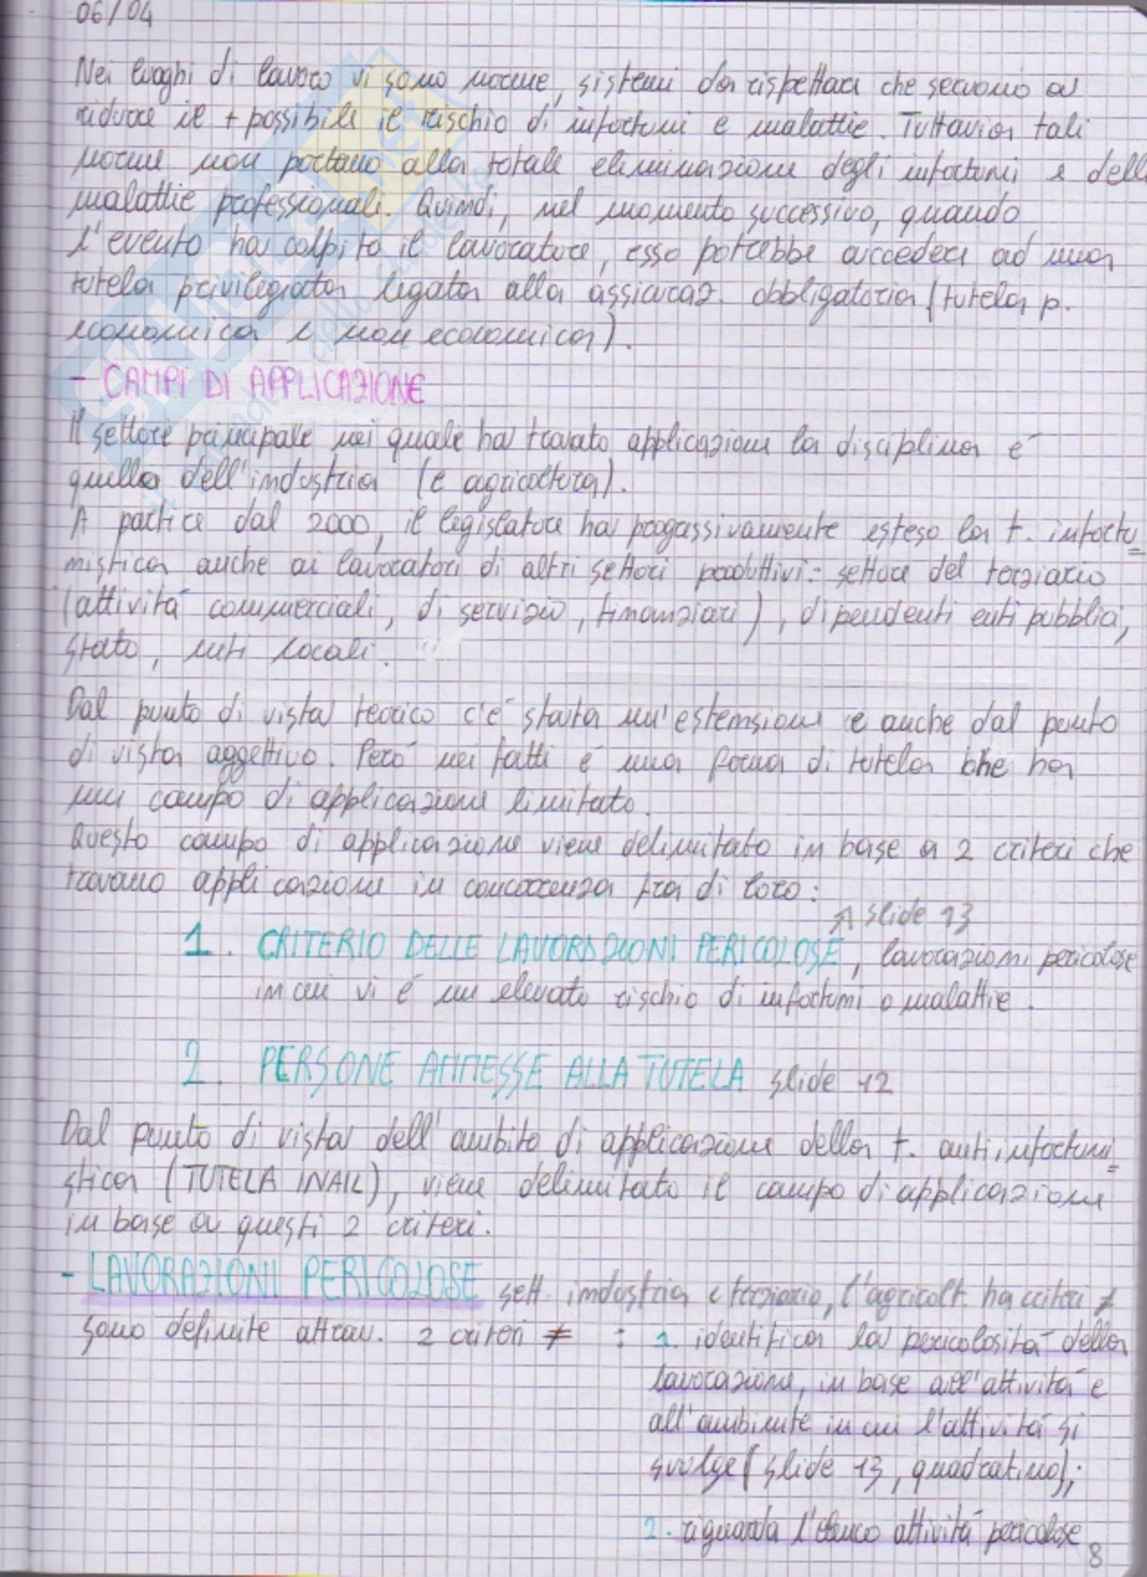 06/04
Nei luoghi di lavoro vi sono norme, sistemi da rispettare che servono a
ridurre il + possibile il rischio di infortuni e malattie. Tuttavia tali
norme non portano alla totale eliminazione degli infortuni e delle
malattie professionali. Quindi, nel momento successivo, quando
l'evento ha colpito il lavoratore, esso potrebbe accedere ad una
tutela privilegiata legata alla assicuraz. obbligatoria (tutela p.
economica e non economica).
- CAMPI DI APPLICAZIONE
Il settore principale nei quale ha trovato applicazione la disciplina é
quello dell'industria (e agricoltura).
A partire dal 2000, il legislatore ha progressivamente esteso la t. infortu=
nistica anche ai lavoratori di altri settori produttivi: settore del terziario
(attivitá commerciali, di servizio, finanziari), dipendenti enti pubblici,
stato, enti locali.
Dal punto di vista teorico c'é stata un'estensione e anche dal punto
di vista oggettivo. Però nei fatti é una forma di tutela che ha
un campo di applicazione limitato.
Questo campo di applicazione viene delimitato in base a 2 criteri che
trovano applicazione in concorrenza fra di loro:
slide 13
1. CRITERIO DELLE LAVORAZIONI PERICOLOSE, lavorazioni pericolose
in cui vi é un elevato rischio di infortuni o malattie.
2. PERSONE AMMESSE ALLA TUTELA slide 12
Dal punto di vista dell'ambito di applicazione della t. antinfortuni=
stica (TUTELA INAIL), viene delimitato il campo di applicazione
in base a questi 2 criteri.
- LAVORAZIONI PERICOLOSE sett. industria e terziario, l'agricolt. ha criteri ≠
sono definite attrav. 2 criteri ≠ : 1. identifica la pericolositá della
lavorazione, in base all'attivitá e
all'ambiente in cui l'attivitá si
svolge (slide 13, quadratino);
2. riguarda l'elenco attivitá pericolose
8